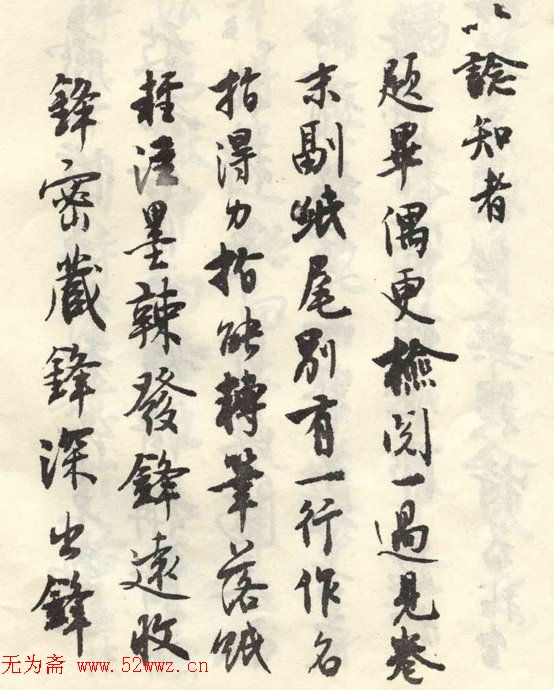 以諗知者
題畢偶更檢閱一過見卷
末副紙尾別有一行作名
指得力指能轉筆落紙
輕注墨辣發鋒遠收
鋒密藏鋒深出鋒
无为斋 www.52wwz.cn